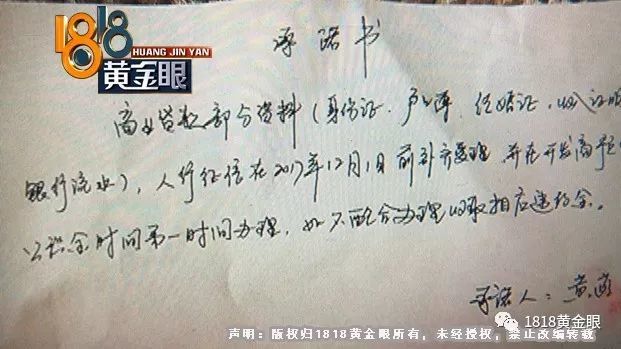 1818
HUANG JIN YAN
黄金眼
承诺书
商业贷款部分资料（身份证、户口簿、结婚证、收入证明
银行流水），人行征信在2017年12月1日前补齐办理，并在开发商
时间第一时间办理，如不配合办理收取相应违约金。
承诺人：黄
1818黄金眼
声明：版权归1818黄金眼所有，未经授权，禁止改编转载